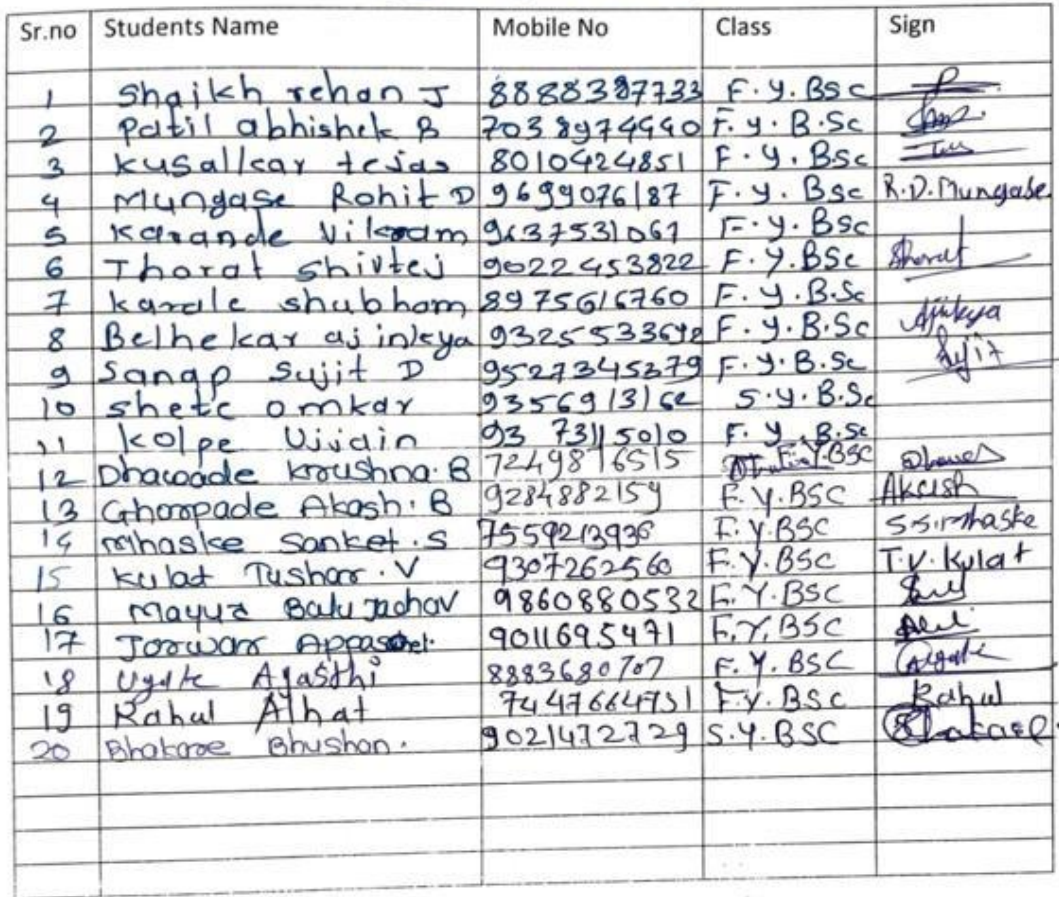 Sr.no Students Name Mobile No Class Sign
1 Shaikh rehan J 8888387733 F.Y.BSc
2 Patil abhishek B 7038974440 F.Y.B.Sc
3 kusalkar tejas 8010424851 F.Y.BSc
4 Mungase Rohit D 9699076187 F.Y.BSc R.D.Mungase
5 Karande Vikram 9637531061 F.Y.BSc
6 Thorat Shivtej 9022453822 F.Y.BSc Thorat
7 karale shubham 8975616760 F.Y.B.Sc
8 Belhekar ajinkya 9325533642 F.Y.B.Sc Ajinkya
9 Sanap Sujit D 9527345379 F.Y.B.Sc Sujit
10 shete omkar 9356913162 S.Y.B.Sc
11 kolpe Ujjain 93 73115010 F.Y.B.Sc
12 Dhawade Kroushna.B 7249816515 F.Y.BSC
13 Ghorpade Akash.B 9284882159 F.Y.BSC Akash
14 Mhaske Sanket.S 7559213936 F.Y.BSC S.S.Mhaske
15 Kulat Tushar.V 9307262560 F.Y.BSC T.V.Kulat
16 Mayur Balu Jadhav 9860880532 F.Y.BSC
17 Jorwar 9011695471 F.Y.BSC
18 Ugale Agasthi 8883680707 F.Y.BSC Ugale
19 Rahul Alhat 7447664731 F.Y.BSC Rahul
20 Bhakare Bhushan. 9021472729 S.Y.BSC Bhakare